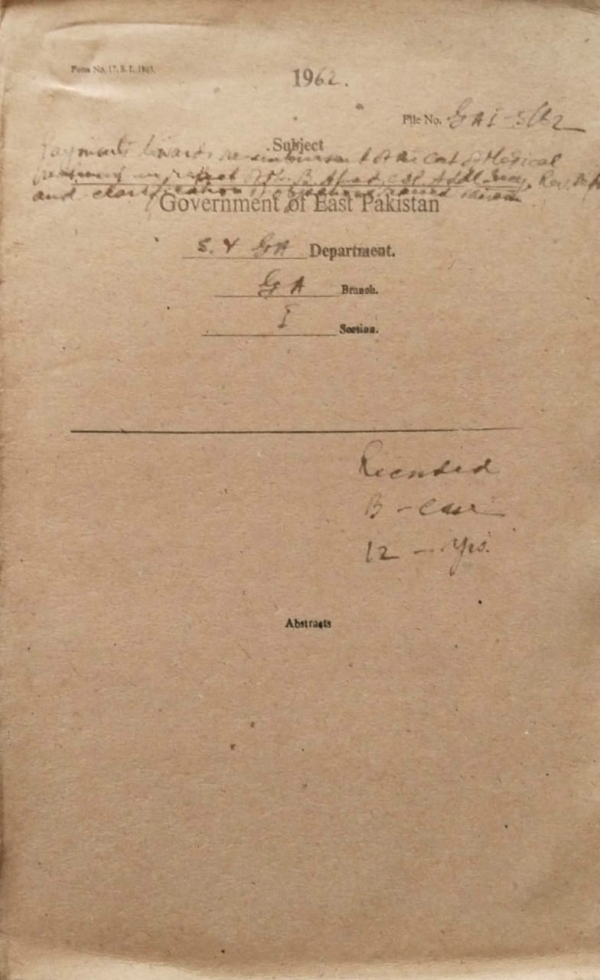 Form No. 17, S. I., 1963.
1962.
File No. GAI-5/62
Subject
Payments towards re-imbursement to the cost of Medical
treatment in respect of B. Ahmed, CSP, Addl. Secy, Rev.
and clarification
Government of East Pakistan
S. & GA Department.
GA Branch.
I Section.
Recorded
B - Class
12 - Yrs.
Abstracts